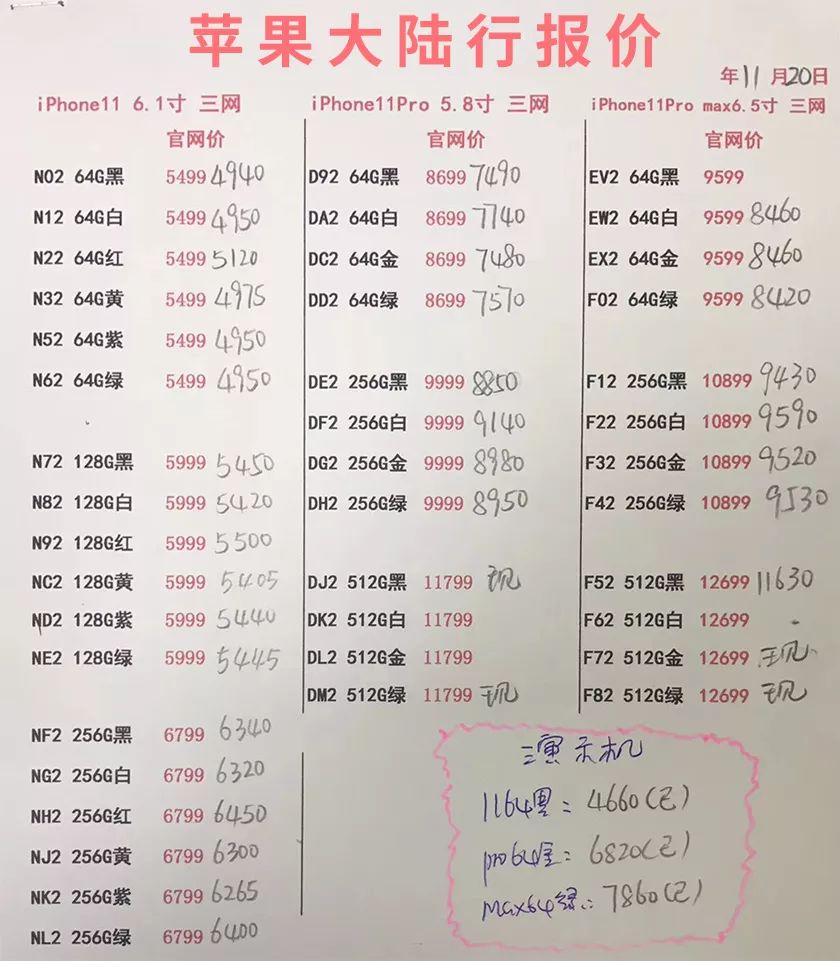 苹果大陆行报价
年11月20日
iPhone11 6.1寸 三网
官网价
N02 64G黑 5499 4940
N12 64G白 5499 4950
N22 64G红 5499 5120
N32 64G黄 5499 4975
N52 64G紫 5499 4950
N62 64G绿 5499 4950
N72 128G黑 5999 5450
N82 128G白 5999 5420
N92 128G红 5999 5500
NC2 128G黄 5999 5405
ND2 128G紫 5999 5440
NE2 128G绿 5999 5445
NF2 256G黑 6799 6340
NG2 256G白 6799 6320
NH2 256G红 6799 6450
NJ2 256G黄 6799 6300
NK2 256G紫 6799 6265
NL2 256G绿 6799 6400
iPhone11Pro 5.8寸 三网
官网价
D92 64G黑 8699 7490
DA2 64G白 8699 7740
DC2 64G金 8699 7480
DD2 64G绿 8699 7570
DE2 256G黑 9999 8850
DF2 256G白 9999 9140
DG2 256G金 9999 8980
DH2 256G绿 9999 8950
DJ2 512G黑 11799 现
DK2 512G白 11799
DL2 512G金 11799
DM2 512G绿 11799 现
iPhone11Pro max6.5寸 三网
官网价
EV2 64G黑 9599
EW2 64G白 9599 8460
EX2 64G金 9599 8460
F02 64G绿 9599 8420
F12 256G黑 10899 9430
F22 256G白 10899 9590
F32 256G金 10899 9520
F42 256G绿 10899 9530
F52 512G黑 12699 11630
F62 512G白 12699
F72 512G金 12699 现
F82 512G绿 12699 现
演示机
1164黑: 4660(已)
pro64金: 6820(已)
Max64绿: 7860(已)